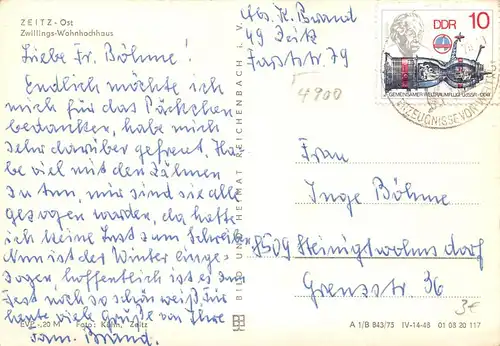 ZEITZ-Ost
Zwillings-Wohnhochhaus
Liebe Fr. Böhme!
Endlich möchte ich
mich für das Päckchen
bedanken, habe mich
sehr darüber gefreut. Ha-
be viel mit den Zähnen
zu tun, mir sind sie alle
gezogen worden, da hatte
ich keine Lust zum Schreiben
Nun ist der Winter einge-
zogen, hoffentlich ist es zum
Fest noch so schön weiß. Für
heute viele Grüße von Ihre
Fam. Brand.
EVP -,20 M Foto: Kühn, Zeitz
BILD UND HEIMAT REICHENBACH i. V.
Abs. K. Brand
49 Zeitz
Faststr. 79
4900
DDR 10
GEMEINSAMER WELTRAUMFLUG UdSSR-DDR
Frau
Inge Böhme
8509 Steinigtwolmsdorf
Grenzstr. 36
3€
A 1/B 843/75 IV-14-48 01 08 20 117